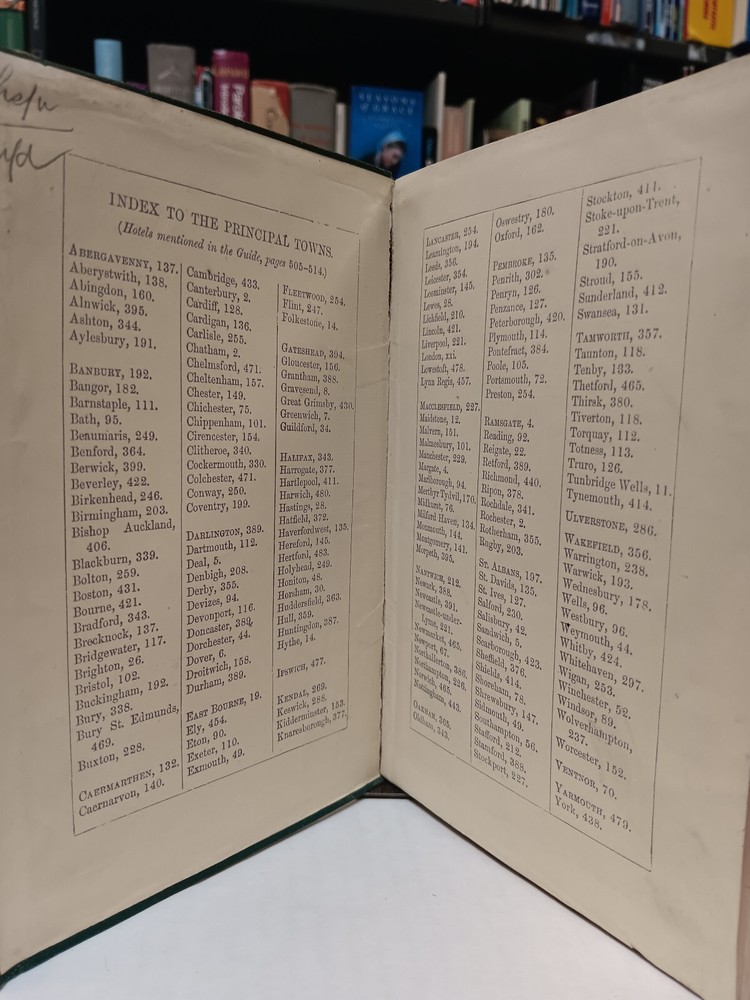 INDEX TO THE PRINCIPAL TOWNS.
(Hotels mentioned in the Guide, pages 505-514.)
ABERGAVENNY, 137.
Aberystwith, 138.
Abingdon, 160.
Alnwick, 395.
Ashton, 344.
Aylesbury, 191.
BANBURY, 192.
Bangor, 182.
Barnstaple, 111.
Bath, 95.
Beaumaris, 249.
Benford, 364.
Berwick, 399.
Beverley, 422.
Birkenhead, 246.
Birmingham, 203.
Bishop Auckland,
406.
Blackburn, 339.
Bolton, 259.
Boston, 431.
Bourne, 421.
Bradford, 343.
Brecknock, 137.
Bridgewater, 117.
Brighton, 26.
Bristol, 102.
Buckingham, 192.
Bury, 338.
Bury St. Edmunds,
469.
Buxton, 228.
CAERMARTHEN, 132.
Caernarvon, 140.
Cambridge, 433.
Canterbury, 2.
Cardiff, 128.
Cardigan, 136.
Carlisle, 255.
Chatham, 2.
Chelmsford, 471.
Cheltenham, 157.
Chester, 149.
Chichester, 75.
Chippenham, 101.
Cirencester, 154.
Clitheroe, 340.
Cockermouth, 330.
Colchester, 471.
Conway, 250.
Coventry, 199.
DARLINGTON, 389.
Dartmouth, 112.
Deal, 5.
Denbigh, 208.
Derby, 355.
Devizes, 94.
Devonport, 116.
Doncaster, 389.
Dorchester, 44.
Dover, 6.
Droitwich, 158.
Durham, 389.
EAST BOURNE, 19.
Ely, 454.
Eton, 90.
Exeter, 110.
Exmouth, 49.
FLEETWOOD, 254.
Flint, 247.
Folkestone, 14.
GATESHEAD, 394.
Gloucester, 156.
Grantham, 388.
Gravesend, 8.
Great Grimsby, 430.
Greenwich, 7.
Guildford, 34.
HALIFAX, 343.
Harrogate, 377.
Hartlepool, 411.
Harwich, 480.
Hastings, 28.
Hatfield, 372.
Haverfordwest, 135.
Hereford, 145.
Hertford, 483.
Holyhead, 249.
Honiton, 48.
Horsham, 30.
Huddersfield, 363.
Hull, 359.
Huntingdon, 387.
Hythe, 14.
IPSWICH, 477.
KENDAL, 269.
Keswick, 288.
Kidderminster, 153.
Knaresborough, 377.
LANCASTER, 254.
Leamington, 194.
Leeds, 356.
Leicester, 354.
Leominster, 145.
Lewes, 28.
Lichfield, 210.
Lincoln, 421.
Liverpool, 221.
London, xxi.
Lowestoft, 478.
Lynn Regis, 457.
MACCLESFIELD, 227.
Maidstone, 12.
Malvern, 151.
Malmesbury, 101.
Manchester, 229.
Margate, 4.
Marlborough, 94.
Merthyr Tydvil, 170.
Midhurst, 76.
Milford Haven, 134.
Monmouth, 144.
Montgomery, 141.
Morpeth, 395.
NANTWICH, 212.
Newark, 388.
Newcastle, 391.
Newcastle-under-
Lyme, 221.
Newmarket, 465.
Newport, 67.
Northallerton, 386.
Northampton, 226.
Norwich, 465.
Nottingham, 443.
OAKHAM, 363.
Oldham, 343.
Oswestry, 180.
Oxford, 162.
PEMBROKE, 135.
Penrith, 302.
Penryn, 126.
Penzance, 127.
Peterborough, 420.
Plymouth, 114.
Pontefract, 384.
Poole, 105.
Portsmouth, 72.
Preston, 254.
RAMSGATE, 4.
Reading, 92.
Reigate, 22.
Retford, 389.
Richmond, 440.
Ripon, 378.
Rochdale, 341.
Rochester, 2.
Rotherham, 355.
Rugby, 203.
ST. ALBANS, 197.
St. Davids, 135.
St. Ives, 127.
Salford, 230.
Salisbury, 42.
Sandwich, 5.
Scarborough, 423.
Sheffield, 376.
Shields, 414.
Shoreham, 78.
Shrewsbury, 147.
Sidmouth, 49.
Southampton, 56.
Stafford, 212.
Stamford, 388.
Stockport, 227.
Stockton, 411.
Stoke-upon-Trent,
221.
Stratford-on-Avon,
190.
Stroud, 155.
Sunderland, 412.
Swansea, 131.
TAMWORTH, 357.
Taunton, 118.
Tenby, 133.
Thetford, 465.
Thirsk, 380.
Tiverton, 118.
Torquay, 112.
Totness, 113.
Truro, 126.
Tunbridge Wells, 11.
Tynemouth, 414.
ULVERSTONE, 286.
WAKEFIELD, 356.
Warrington, 238.
Warwick, 193.
Wednesbury, 178.
Wells, 96.
Westbury, 96.
Weymouth, 44.
Whitby, 424.
Whitehaven, 297.
Wigan, 253.
Winchester, 52.
Windsor, 89.
Wolverhampton,
237.
Worcester, 152.
VENTNOR, 70.
YARMOUTH, 479.
York, 438.